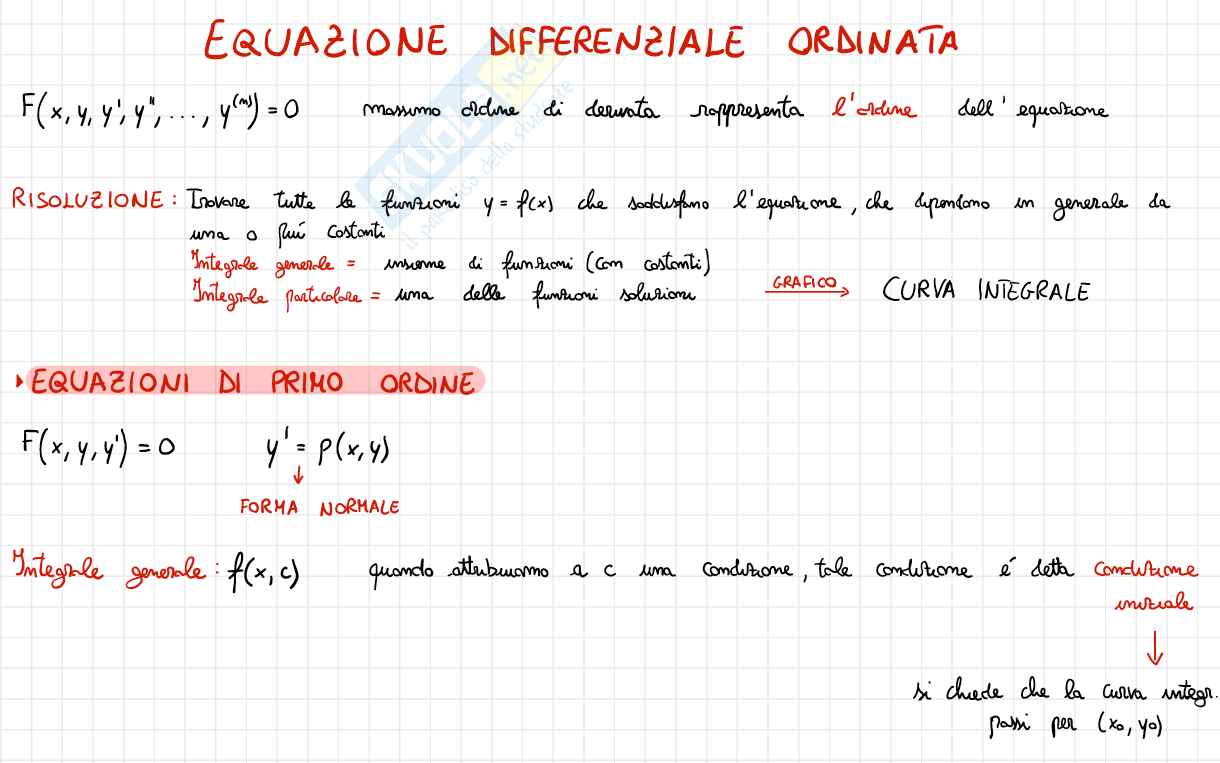 EQUAZIONE DIFFERENZIALE ORDINATA
F(x, y, y', y'', ..., y^(n)) = 0 massimo ordine di derivata rappresenta l'ordine dell'equazione
SKUOLA.net
il paradiso dello studente
RISOLUZIONE: Trovare tutte le funzioni y = f(x) che soddisfano l'equazione, che dipendono in generale da
una o più costanti
Integrale generale = insieme di funzioni (con costanti)
Integrale particolare = una delle funzioni soluzioni GRAFICO → CURVA INTEGRALE
▸ EQUAZIONI DI PRIMO ORDINE
F(x, y, y') = 0 y' = p(x, y)
↓
FORMA NORMALE
Integrale generale: f(x, c) quando attribuiamo a c una condizione, tale condizione é detta condizione
iniziale
↓
si chiede che la curva integr.
passi per (x₀, y₀)